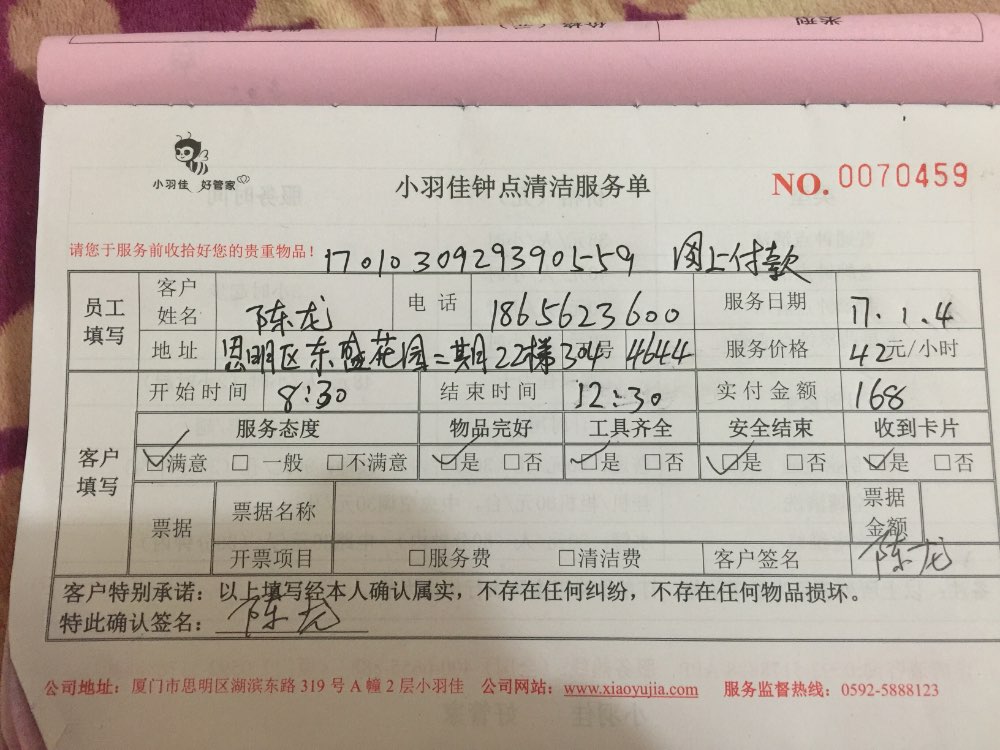 类型
小羽佳 好管家
小羽佳钟点清洁服务单
NO. 0070459
请您于服务前收拾好您的贵重物品！
1701030929390559 网上付款
员工填写 客户姓名 陈龙 电话 1865623600 服务日期 17.1.4
地址 思明区东盛花园二期22梯304 工号 4644 服务价格 42元/小时
客户填写 开始时间 8:30 结束时间 12:30 实付金额 168
服务态度 物品完好 工具齐全 安全结束 收到卡片
☑满意 □一般 □不满意 ☑是 □否 ☑是 □否 ☑是 □否 ☑是 □否
票据 票据名称 票据金额
开票项目 □服务费 □清洁费 客户签名 陈龙
客户特别承诺：以上填写经本人确认属实，不存在任何纠纷，不存在任何物品损坏。
特此确认签名：陈龙
公司地址：厦门市思明区湖滨东路 319 号 A 幢 2 层小羽佳 公司网站：www.xiaoyujia.com 服务监督热线：0592-5888123